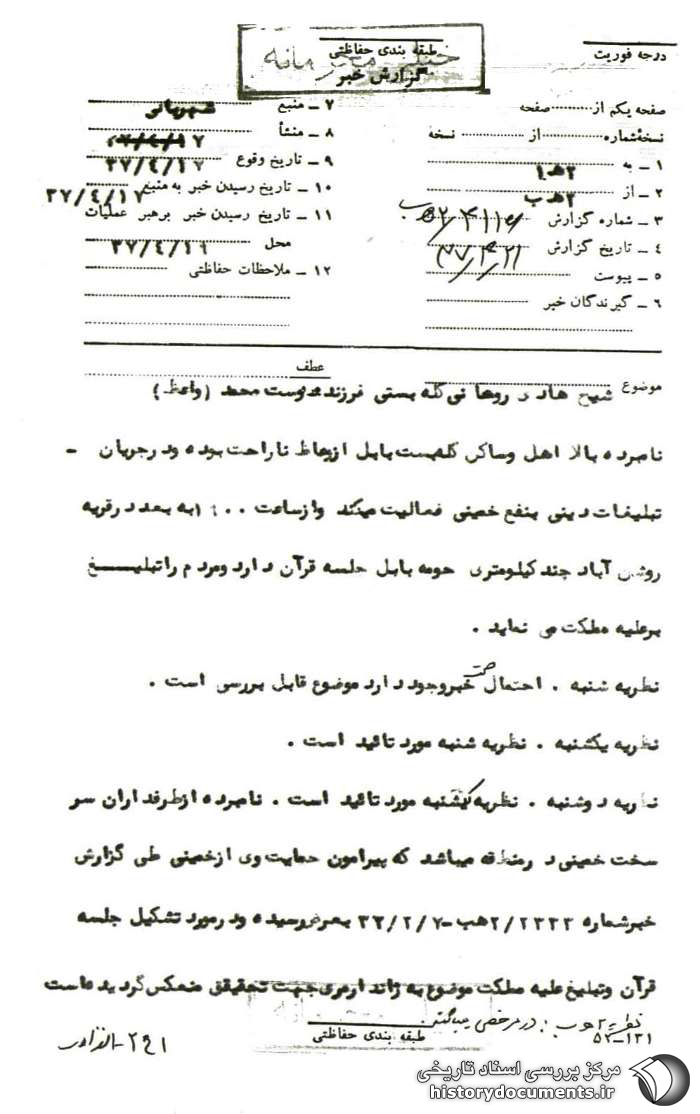 درجه فوریت
طبقه بندی حفاظتی
خیلی محرمانه
گزارش خبر
صفحه یکم از صفحه
نسخهٔ شماره از نسخه
۱ ـ به ۲هـ۱
۲ ـ از ۲هـ ب
۳ ـ شماره گزارش
۴ ـ تاریخ گزارش
۵ ـ پیوست
۶ ـ گیرندگان خبر
۷ ـ منبع شهربانی
۸ ـ منشأ
۹ ـ تاریخ وقوع ۳۷/۴/۱۷
۱۰ ـ تاریخ رسیدن خبر به منبع ۳۷/۴/۱۷
۱۱ ـ تاریخ رسیدن خبر برهبر عملیات
محل ۳۷/۴/۱۹
۱۲ ـ ملاحظات حفاظتی
عطف
موضوع شیخ هادی روحانی کله بستی فرزند دوست محمد (واعظ)
نامبرده بالا اهل وساکن کله‌بست بابل ازوعاظ ناراحت بوده ودرجریان -
تبلیغات دینی بنفع خمینی فعالیت میکند وازساعت ۱۰۰۰ به بعد درقریه
روشن آباد چند کیلومتری حومه بابل جلسه قرآن دارد ومردم راتبلیــغ
برعلیه مملکت می نماید .
نظریه شنبه . احتمال صحت خبروجود دارد موضوع قابل بررسی است .
نظریه یکشنبه . نظریه شنبه مورد تائید است .
نظریه دوشنبه . نظریه یکشنبه مورد تائید است . نامبرده ازطرفداران سر
سخت خمینی در منطقه میباشد که پیرامون حمایت وی ازخمینی طی گزارش
خبرشماره ۲/۲۳۳۳هـ ب-۳۷/۲/۷ بعرض رسیده ودرمورد تشکیل جلسه
قرآن وتبلیغ علیه مملکت موضوع به ژاندارمری جهت تحقیق منعکس گردیده است
نظریه ۲هـ ب : در مرخصی میباشد
طبقه بندی حفاظتی
۵۲-۱۳۱
مرکز بررسی اسناد تاریخی
historydocuments.ir